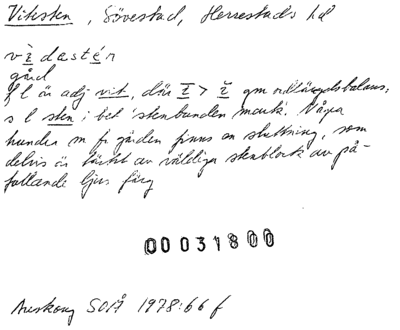 Vitsten, Sövestad, Herrestads hd
vìdastén
gård
f l är adj vit, där ī > ĭ gm
s l sten i bet 'stenbunden mark'. Några
hundra m fr gården finns en sluttning, som
delvis är täckt av väldiga stenblock av på-
fallande ljus färg
00031800
SOÅ 1978:66 f